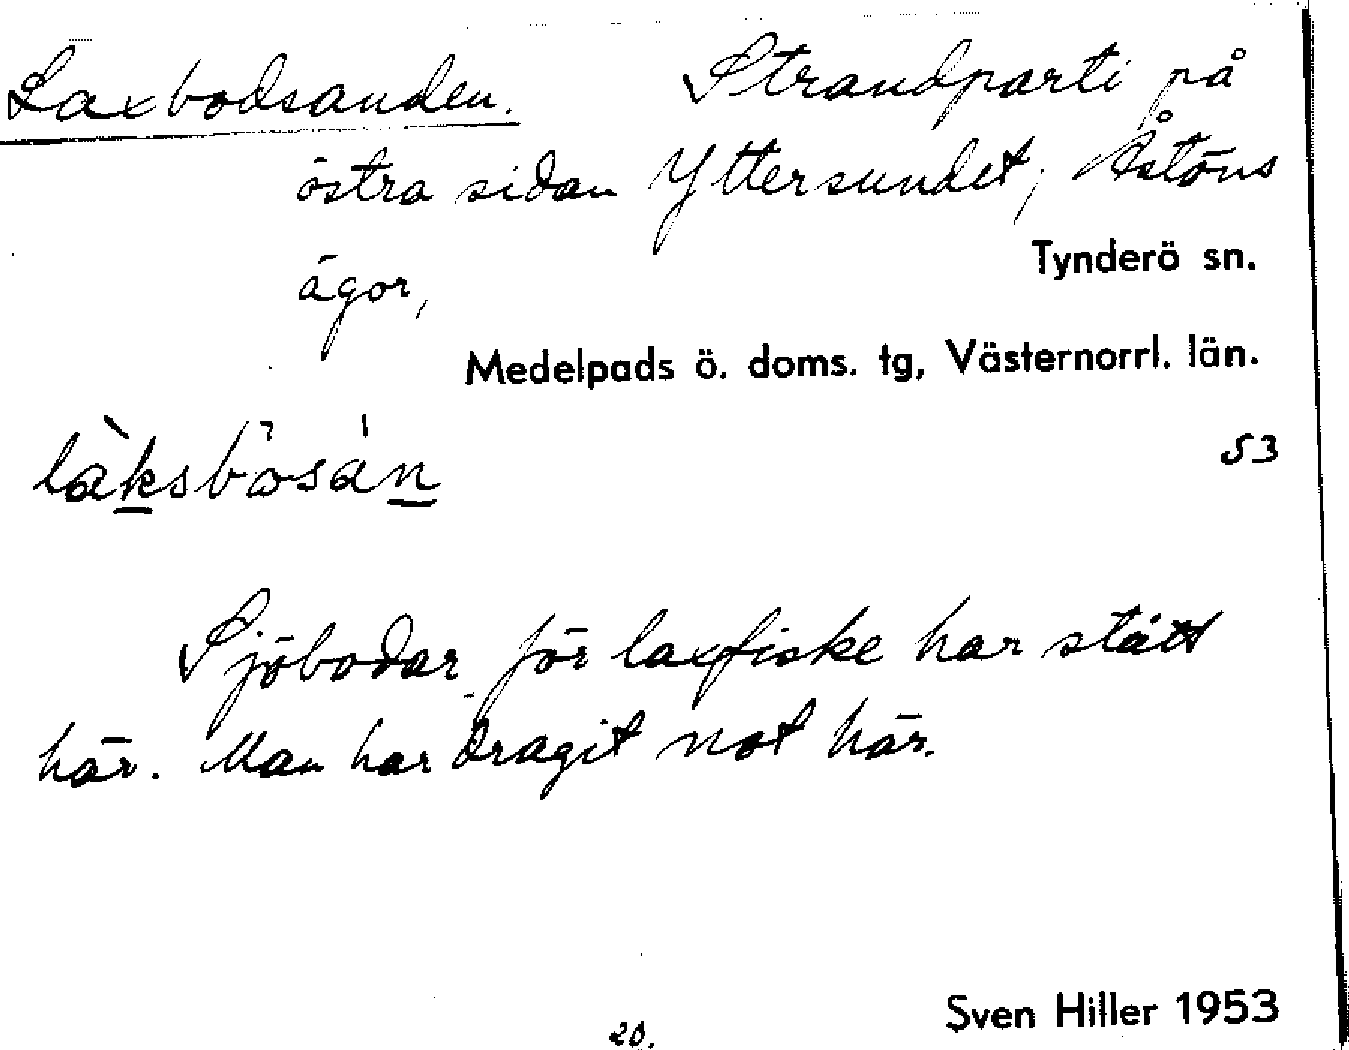 Laxbodsanden. Strandparti på
östra sidan Yttersundet, Åstöns
ägor,
Tynderö sn.
Medelpads ö. doms. tg, Västernorrl. län.
53
Sjöbodar för laxfiske har stått
här. Man har dragit not här.
20.
Sven Hiller 1953